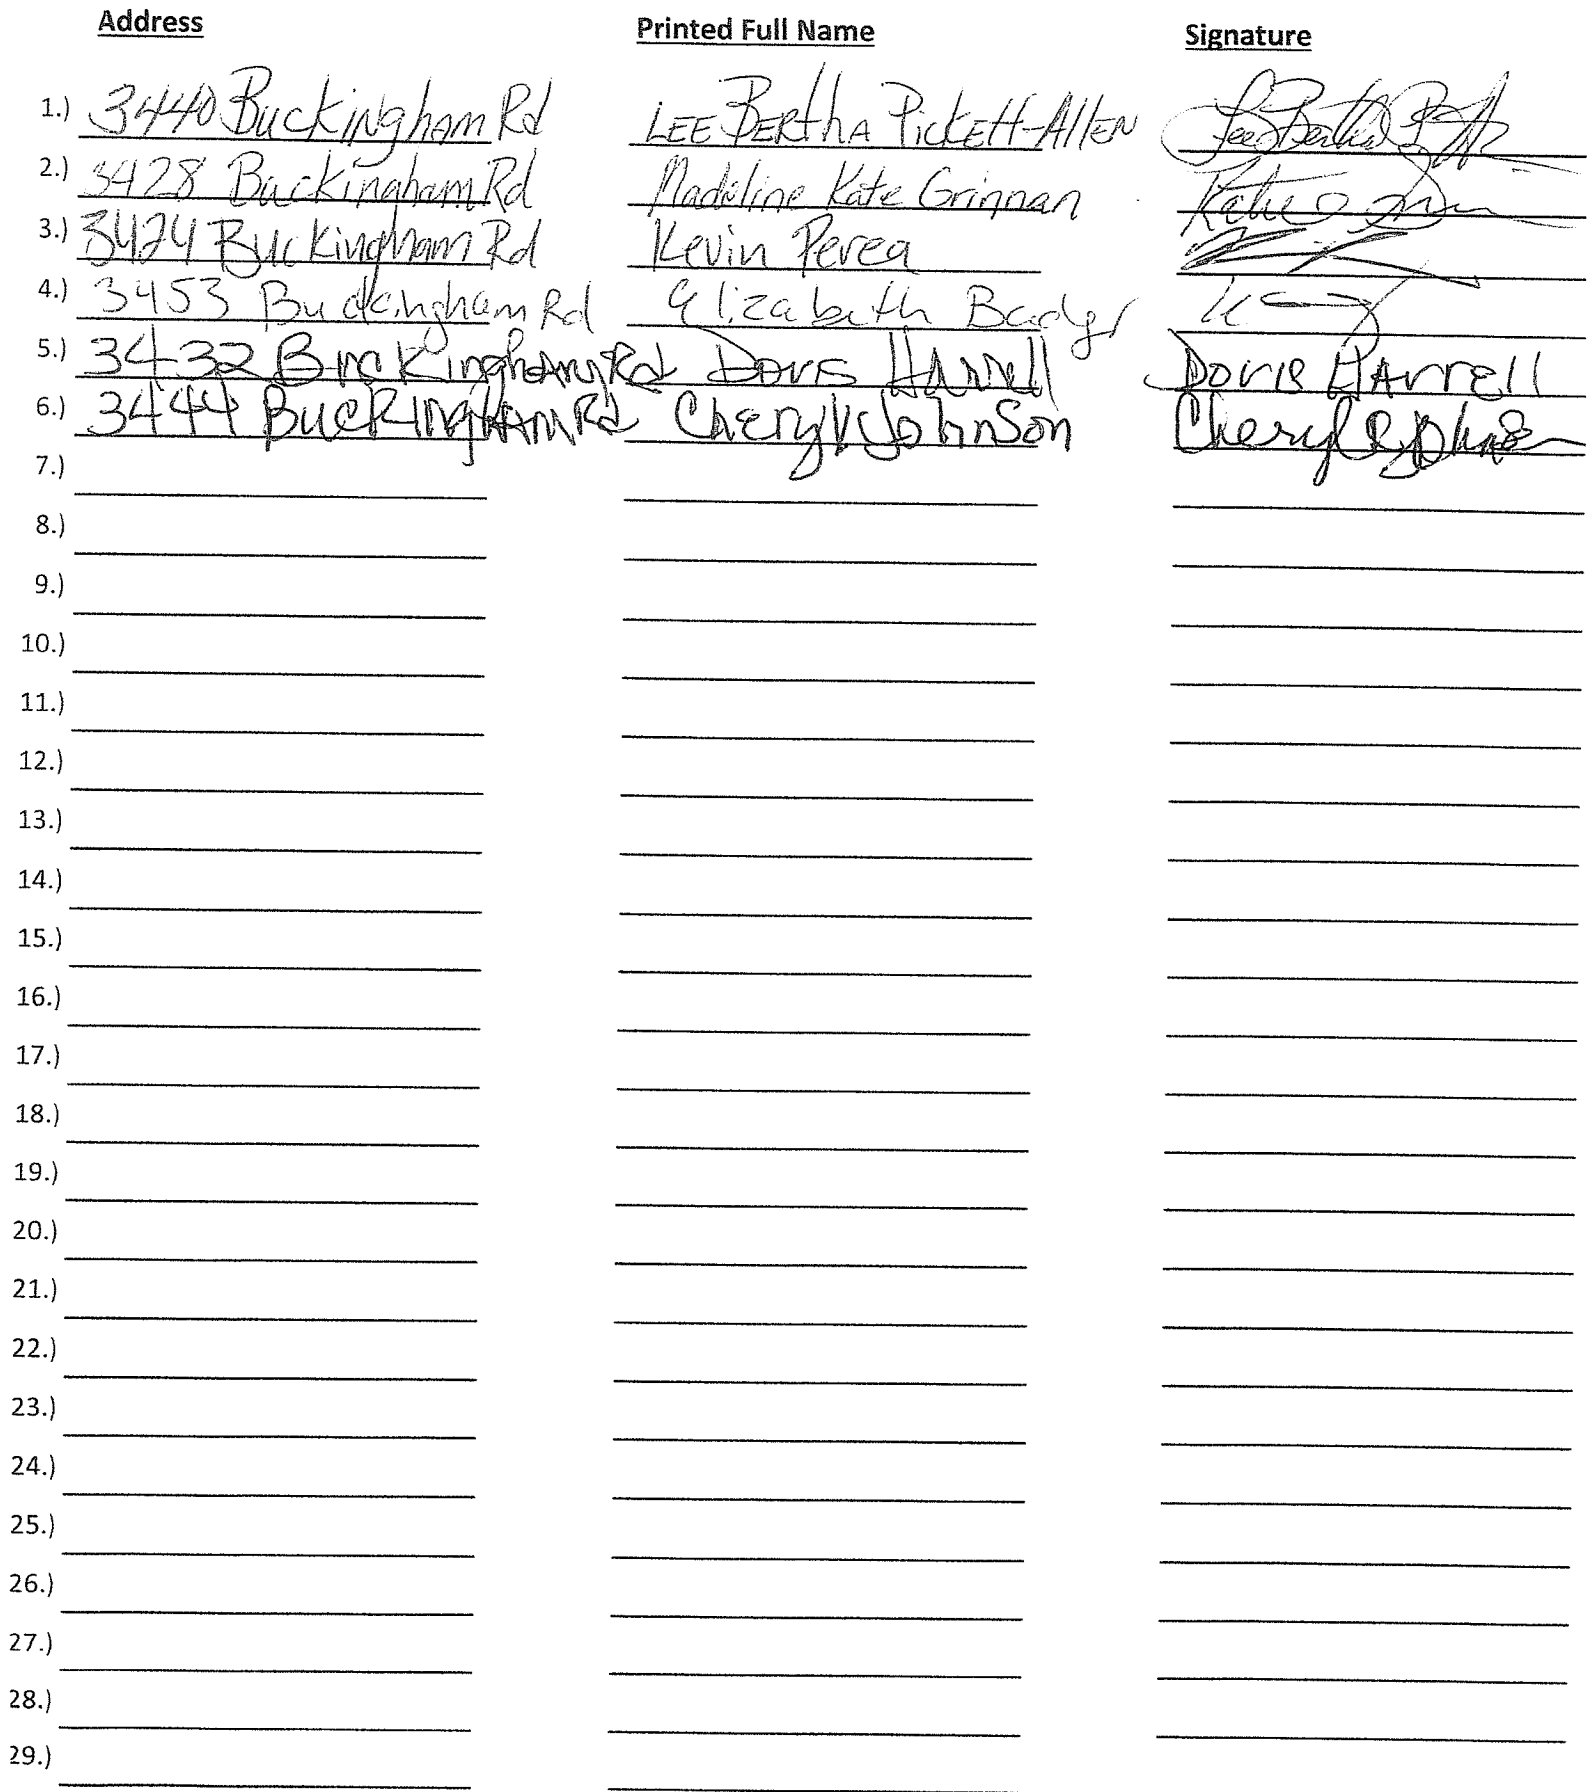 Address Printed Full Name Signature
1.) 3440 Buckingham Rd LEE BERthA PickEtt-AllEN Lee Bertha
2.) 3428 Buckingham Rd Madeline Kate Grinnan Katie
3.) 3424 Buckingham Rd Kevin Perea
4.) 3453 Buckingham Rd Elizabeth Badger
5.) 3432 Buckingham Rd Doris Harrell Doris Harrell
6.) 3444 Buckingham Rd Cheryl Johnson Cheryl Johnson
7.)
8.)
9.)
10.)
11.)
12.)
13.)
14.)
15.)
16.)
17.)
18.)
19.)
20.)
21.)
22.)
23.)
24.)
25.)
26.)
27.)
28.)
29.)